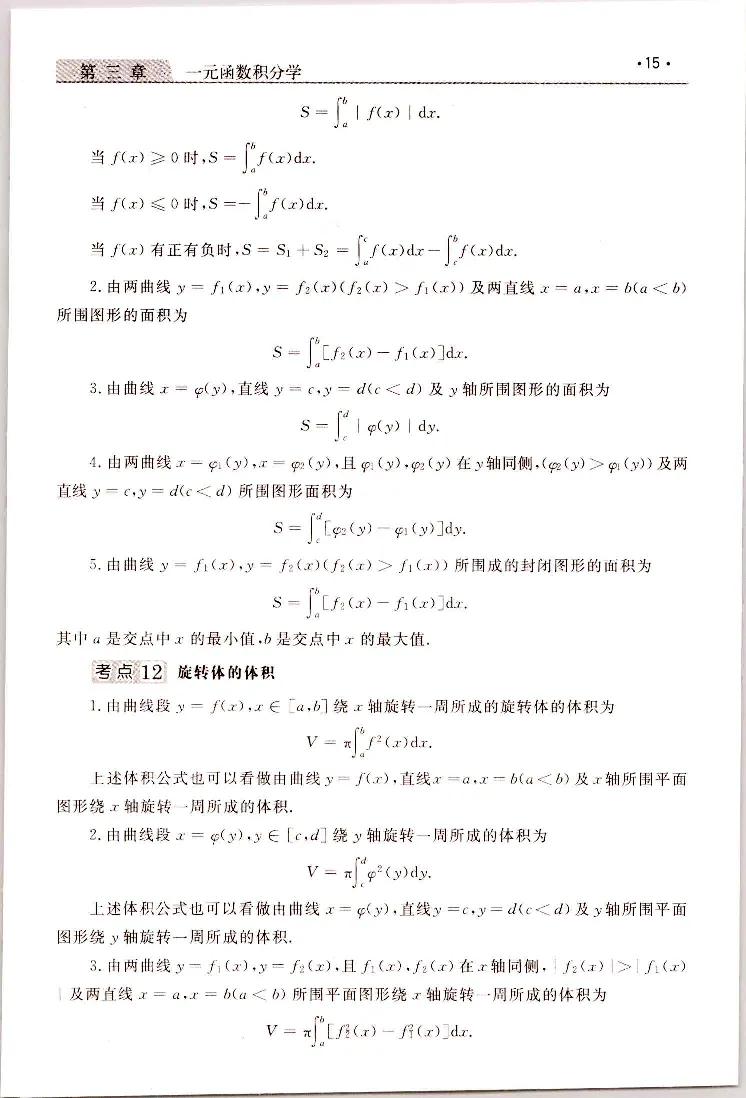 第三章 一元函数积分学 ·15·
S = ∫_a^b | f(x) | dx.
当 f(x) ⩾ 0 时,S = ∫_a^b f(x)dx.
当 f(x) ⩽ 0 时,S = −∫_a^b f(x)dx.
当 f(x) 有正有负时,S = S₁ + S₂ = ∫_a^c f(x)dx − ∫_c^b f(x)dx.
2. 由两曲线 y = f₁(x),y = f₂(x)(f₂(x) > f₁(x)) 及两直线 x = a,x = b(a < b)
所围图形的面积为
S = ∫_a^b [f₂(x) − f₁(x)]dx.
3. 由曲线 x = φ(y),直线 y = c,y = d(c < d) 及 y 轴所围图形的面积为
S = ∫_c^d | φ(y) | dy.
4. 由两曲线 x = φ₁(y),x = φ₂(y),且 φ₁(y),φ₂(y) 在 y 轴同侧,(φ₂(y) > φ₁(y)) 及两
直线 y = c,y = d(c < d) 所围图形面积为
S = ∫_c^d [φ₂(y) − φ₁(y)]dy.
5. 由曲线 y = f₁(x),y = f₂(x)(f₂(x) > f₁(x)) 所围成的封闭图形的面积为
S = ∫_a^b [f₂(x) − f₁(x)]dx.
其中 a 是交点中 x 的最小值,b 是交点中 x 的最大值.
考点 12 旋转体的体积
1. 由曲线段 y = f(x),x ∈ [a,b] 绕 x 轴旋转一周所成的旋转体的体积为
V = π∫_a^b f²(x)dx.
上述体积公式也可以看做由曲线 y = f(x),直线 x = a,x = b(a < b) 及 x 轴所围平面
图形绕 x 轴旋转一周所成的体积.
2. 由曲线段 x = φ(y),y ∈ [c,d] 绕 y 轴旋转一周所成的体积为
V = π∫_c^d φ²(y)dy.
上述体积公式也可以看做由曲线 x = φ(y),直线 y = c,y = d(c < d) 及 y 轴所围平面
图形绕 y 轴旋转一周所成的体积.
3. 由两曲线 y = f₁(x),y = f₂(x),且 f₁(x),f₂(x) 在 x 轴同侧,| f₂(x) |>| f₁(x)
| 及两直线 x = a,x = b(a < b) 所围平面图形绕 x 轴旋转一周所成的体积为
V = π∫_a^b [f₂²(x) − f₁²(x)]dx.